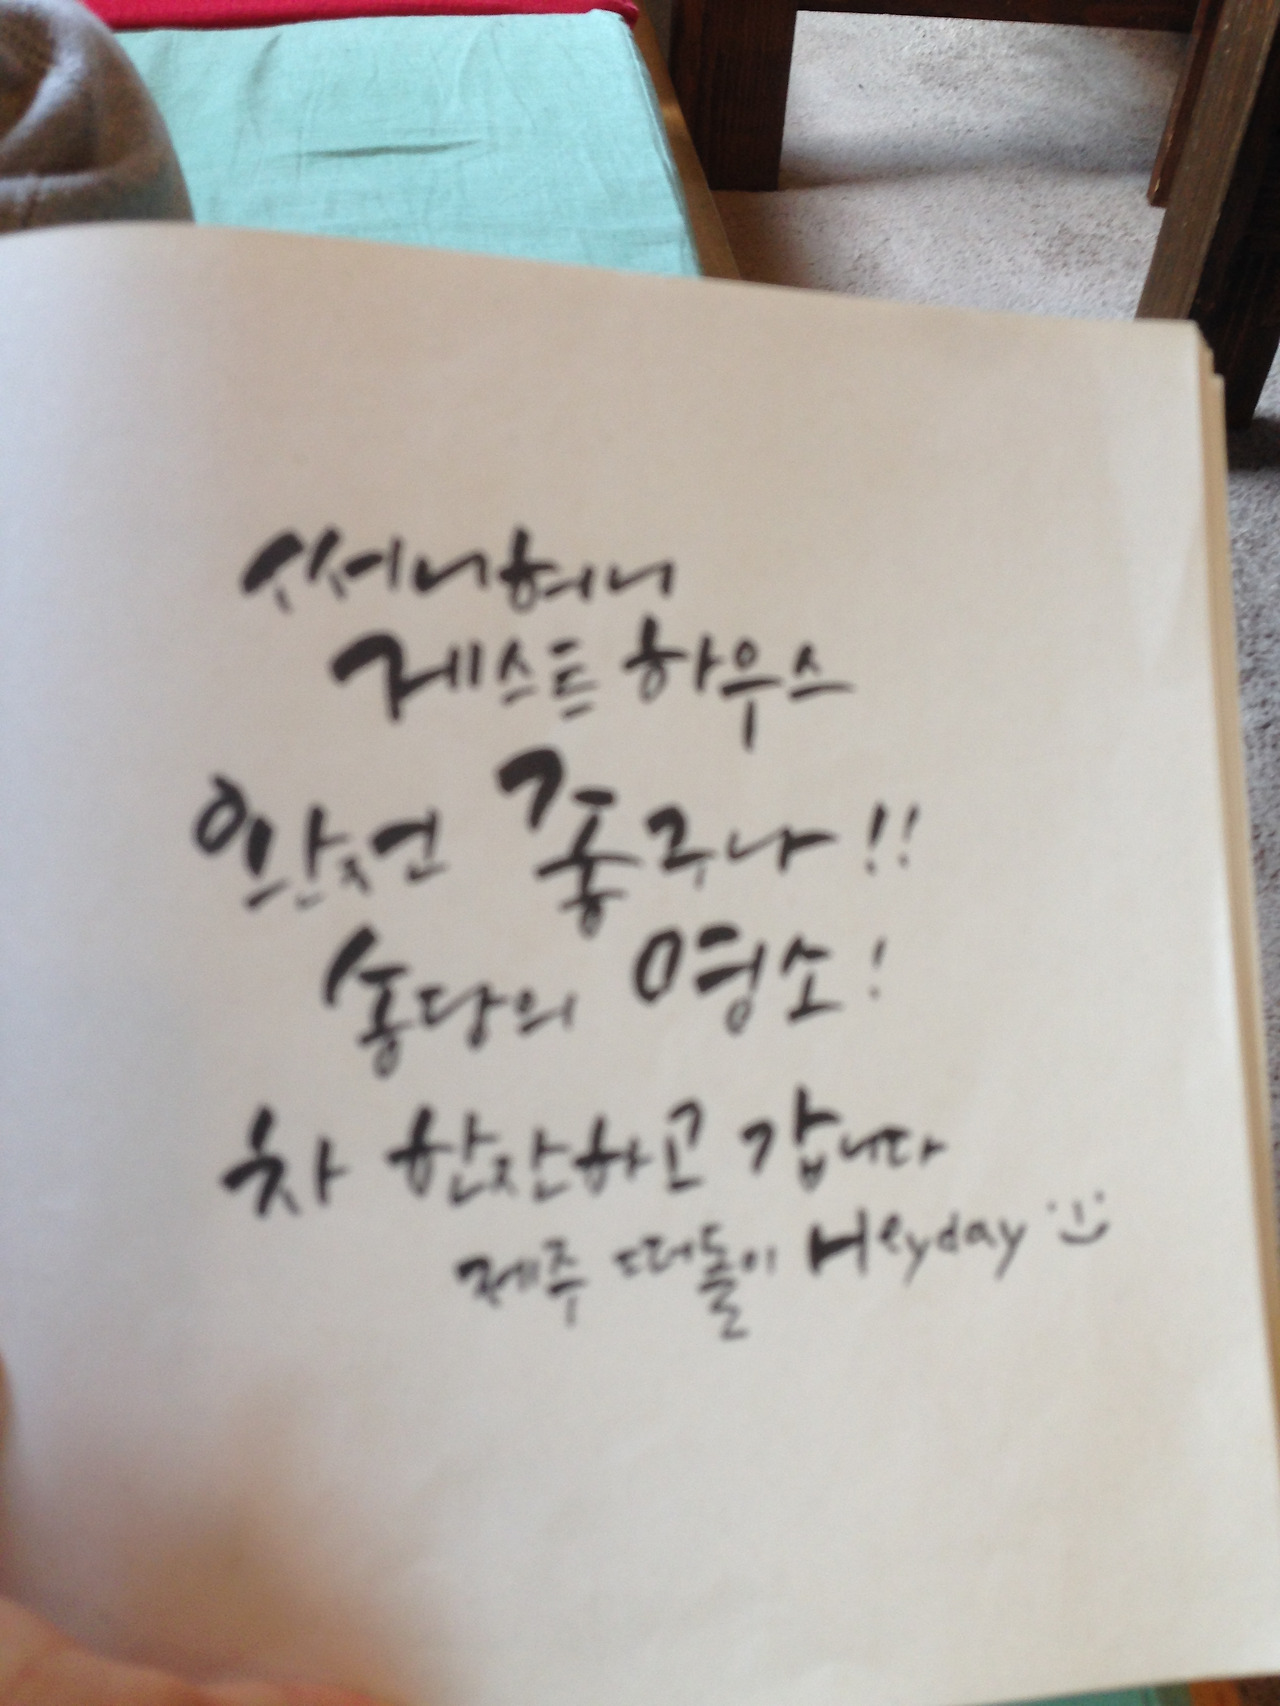 써니허니
게스트 하우스
완전 좋구나!!
송당의 명소!
차 한잔하고 갑니다
제주 떠돌이 Heyday